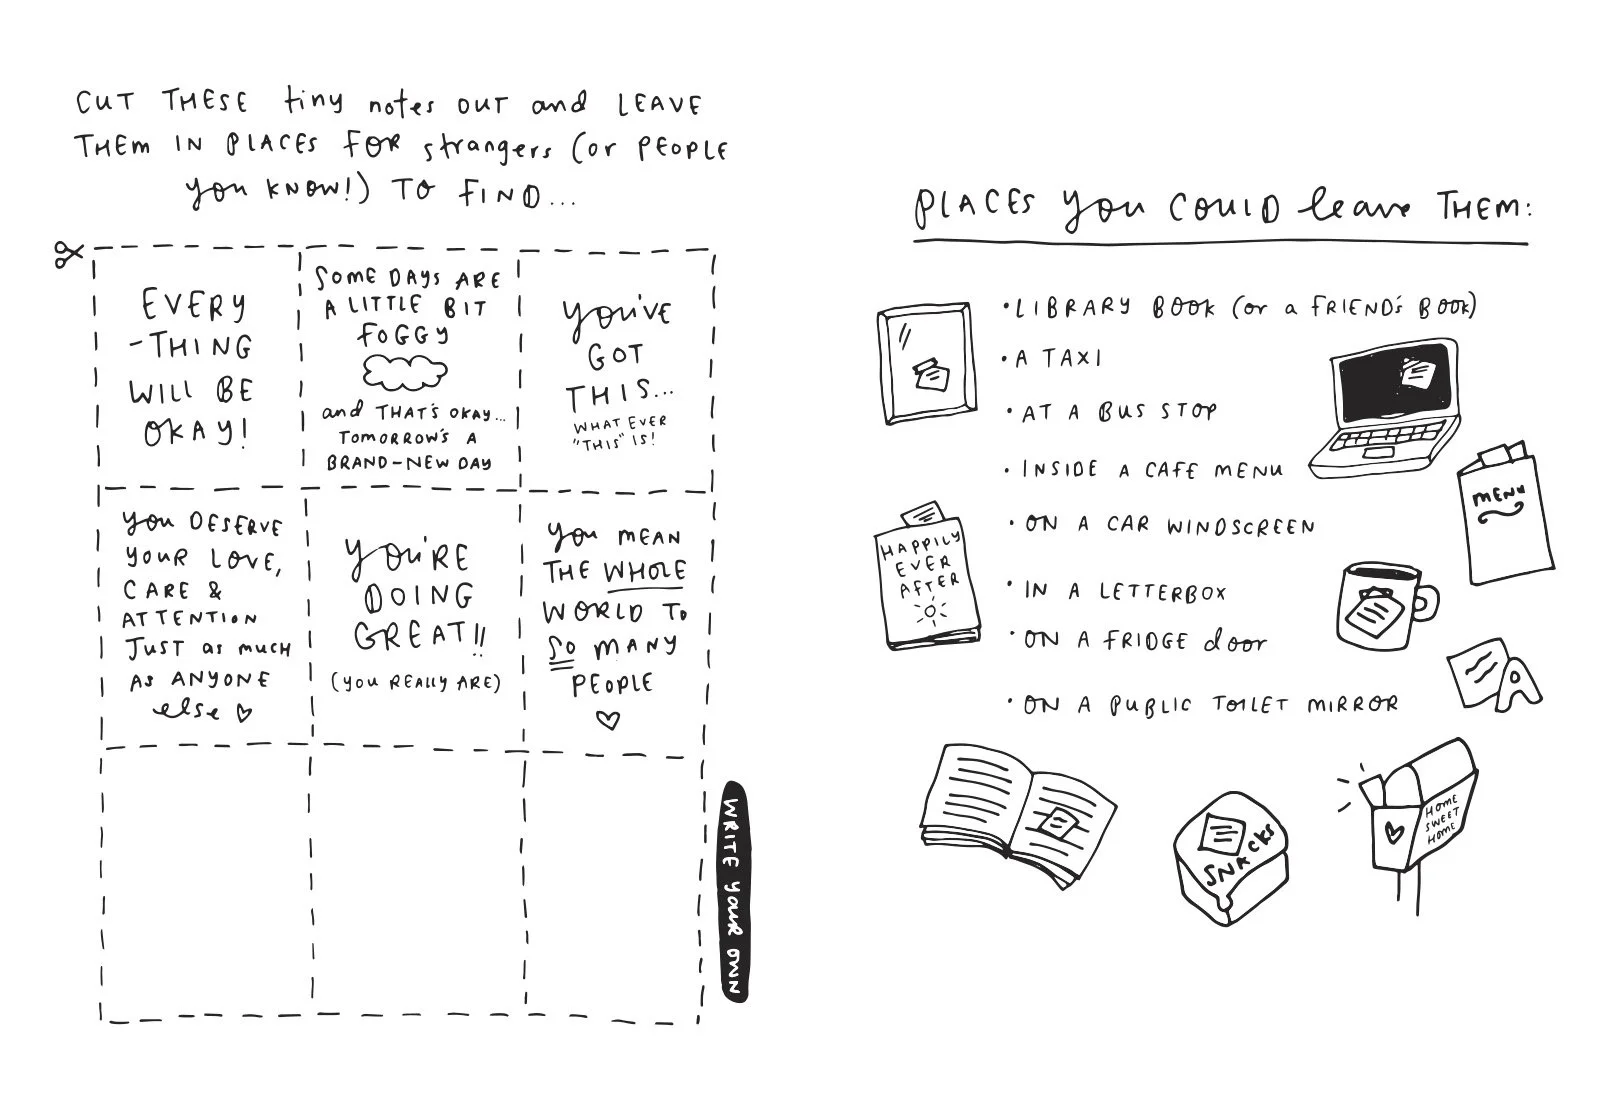 CUT THESE tiny notes OUT and LEAVE
THEM IN PLACES FOR strangers (or PEOPLE
you KNOW!) TO FIND...
EVERY
-THING
WILL BE
OKAY!
SOME DAYS ARE
A LITTLE BIT
FOGGY
and THAT'S OKAY...
TOMORROW'S A
BRAND-NEW DAY
you'VE
GOT
THIS...
WHAT EVER
"THIS" IS!
you DESERVE
YOUR LOVE,
CARE &
ATTENTION
JUST as mucH
AS ANYONE
else
you'RE
DOING
GREAT!!
(you REALLY ARE)
you MEAN
THE WHOLE
WORLD TO
SO MANY
PEOPLE
WRITE YOUR OWN
PLACES you COULD leave THEM:
•LIBRARY BOOK (or a FRIEND'S BOOK)
•A TAXI
•AT A BUS STOP
•INSIDE A CAFE MENU
•ON A CAR WINDSCREEN
•IN A LETTERBOX
•ON A FRIDGE door
•ON A PUBLIC TOILET MIRROR
MENU
HAPPILY
EVER
AFTER
SNACKS
HOME
SWEET
HOME